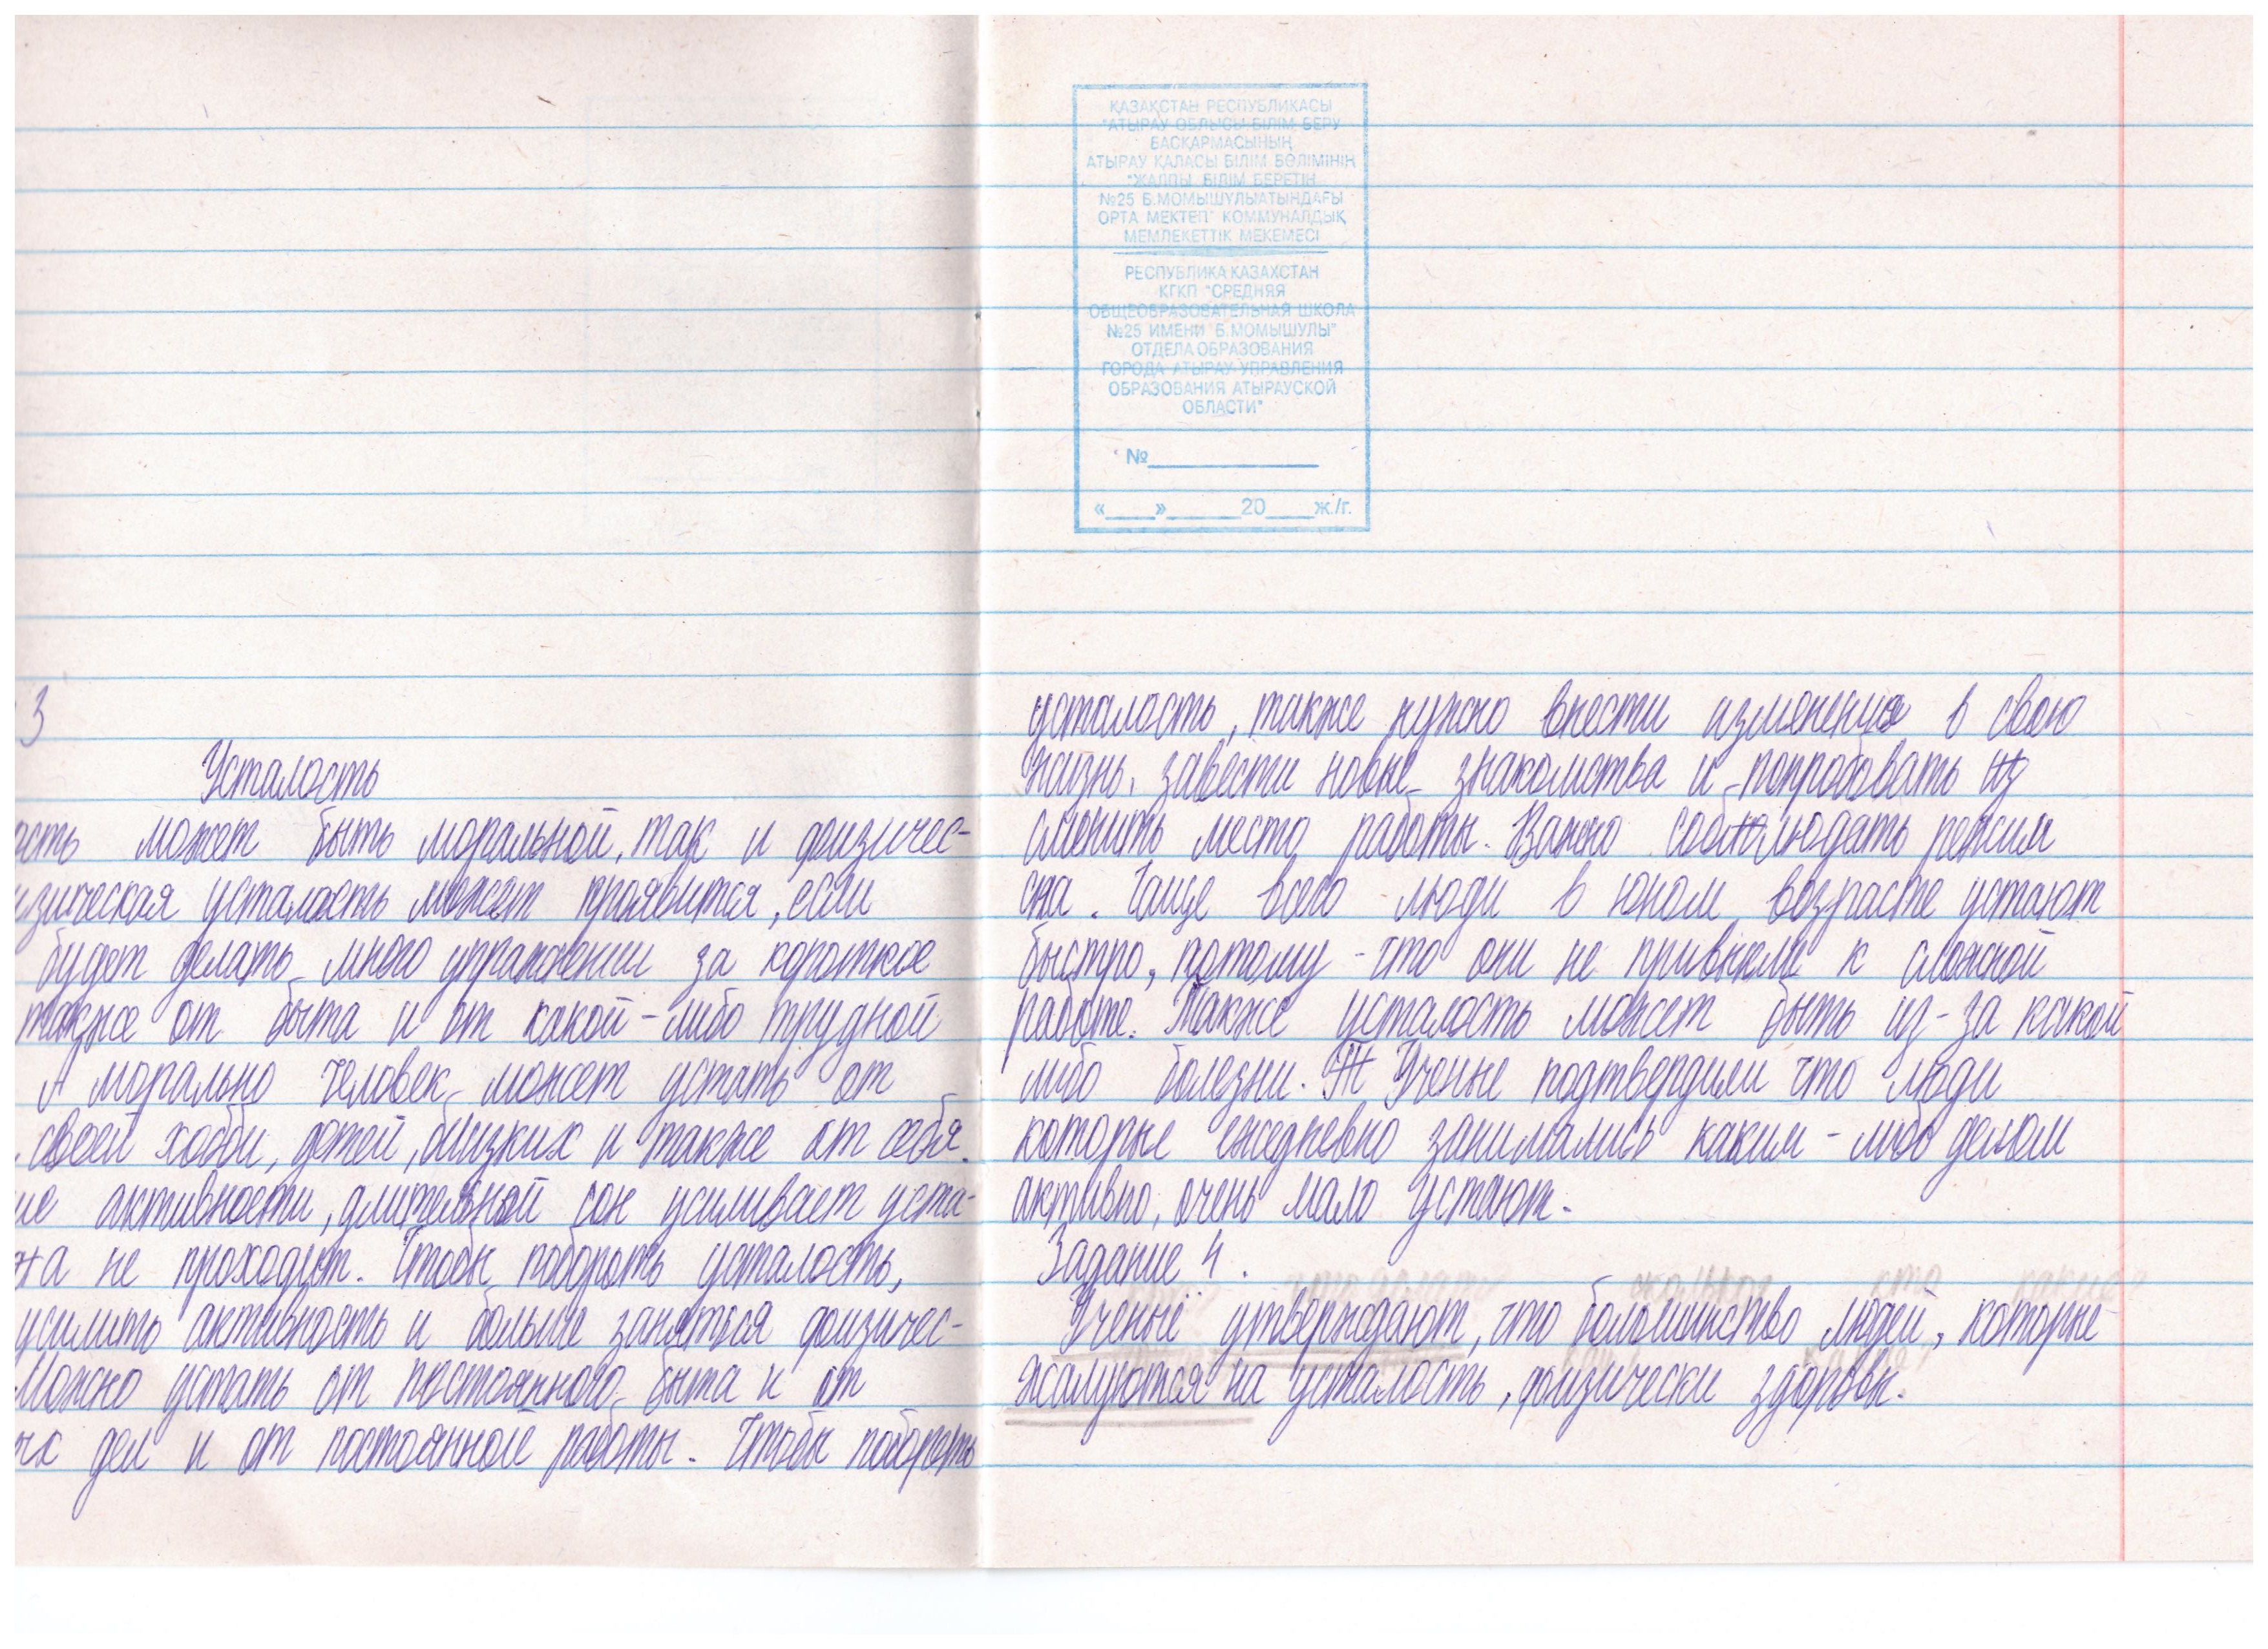 3
Усталость
ость может быть моральной, так и физичес-
изическая усталость может проявится, если
будет делать много упражнении за короткое
также от быта и от какой-либо трудной
А морально человек может устать от
своей хобби, детей, близких и также от себя.
ие активности, длительный сон усиливает уста-
на не проходит. Чтобы побороть усталость,
усилить активность и больше заняться физичес-
Можно устать от постоянного быта и от
ых дел и от постоянной работы. Чтобы побороть
ҚАЗАҚСТАН РЕСПУБЛИКАСЫ
"АТЫРАУ ОБЛЫСЫ БІЛІМ БЕРУ
БАСҚАРМАСЫНЫҢ
АТЫРАУ ҚАЛАСЫ БІЛІМ БӨЛІМІНІҢ
"ЖАЛПЫ БІЛІМ БЕРЕТІН
№25 Б.МОМЫШҰЛЫ АТЫНДАҒЫ
ОРТА МЕКТЕП" КОММУНАЛДЫҚ
МЕМЛЕКЕТТІК МЕКЕМЕСІ
РЕСПУБЛИКА КАЗАХСТАН
КГКП "СРЕДНЯЯ
ОБЩЕОБРАЗОВАТЕЛЬНАЯ ШКОЛА
№25 ИМЕНИ Б.МОМЫШУЛЫ"
ОТДЕЛА ОБРАЗОВАНИЯ
ГОРОДА АТЫРАУ УПРАВЛЕНИЯ
ОБРАЗОВАНИЯ АТЫРАУСКОЙ
ОБЛАСТИ"
№
«____»______20____ж./г.
усталость, также нужно внести изменения в свою
жизнь, завести новые знакомства и попробовать
сменить место работы. Важно соблюдать режим
сна. Чаще всего люди в юном возрасте устают
быстро, потому-что они не привыкли к сложной
работе. Также усталость может быть из-за какой
либо болезни. Ученые подтвердили что люди
которые ежедневно занимались каким-либо делом
активно, очень мало устают.
Задание 4.
Ученые утверждают, что большинство людей, которые
жалуются на усталость, физически здоровы.